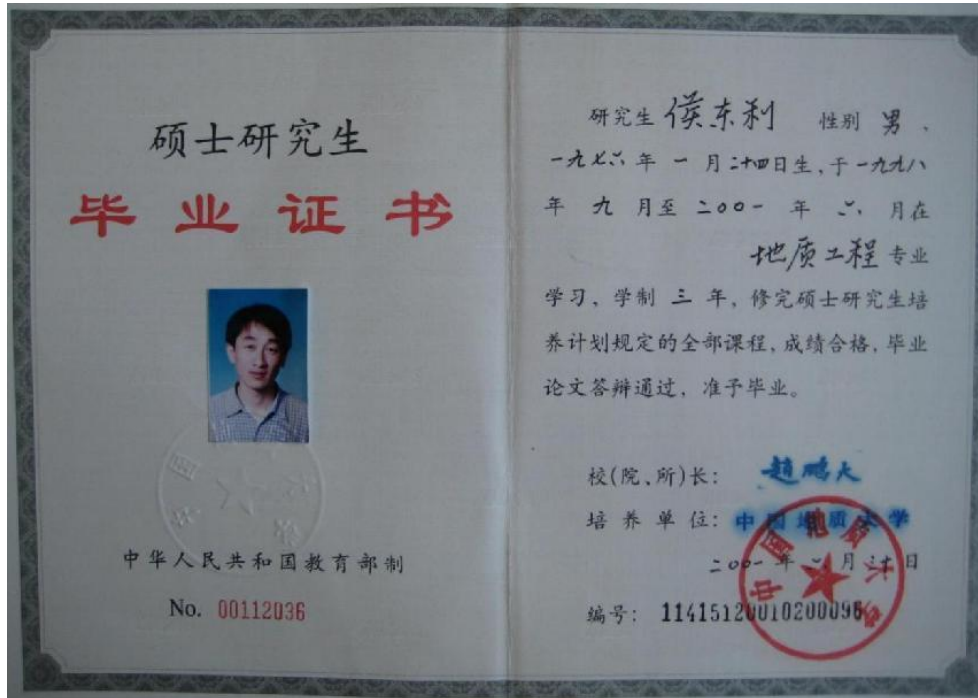 硕士研究生
毕业证书
中华人民共和国教育部制
No. 00112036
研究生 侯东利 性别 男、
一九七六年 一 月二十四日生,于一九九八
年 九 月至 二〇〇一 年 六 月在
地质工程 专业
学习,学制 三 年,修完硕士研究生培
养计划规定的全部课程,成绩合格,毕业
论文答辩通过,准予毕业。
校(院、所)长: 趙鹏大
培养单位: 中国地质大学
二〇〇一年 六 月 日
编号: 11415120010200096
中国地质大学